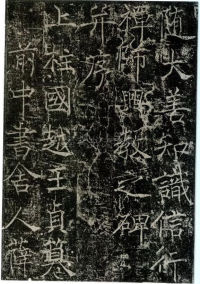 隨大善知識信行
禪師興教之碑
并序
上柱國越王貞纂
前中書舍人薛